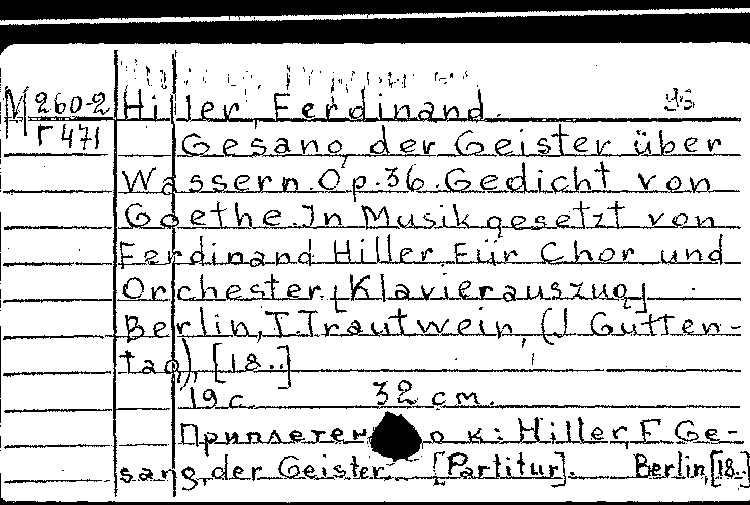 М 260-2 Hiller, Ferdinand. 93
Г 471 Gesang der Geister über
Wassern. Op. 36. Gedicht von
Goethe. In Musik gesetzt von
Ferdinand Hiller. Für Chor und
Orchester. [Klavierauszug]
Berlin, T. Trautwein, (J. Gutten-
tag), [18..]
19 с. 32 см.
Приплетено к: Hiller, F. Ge-
sang der Geister... [Partitur]. Berlin, [18..]